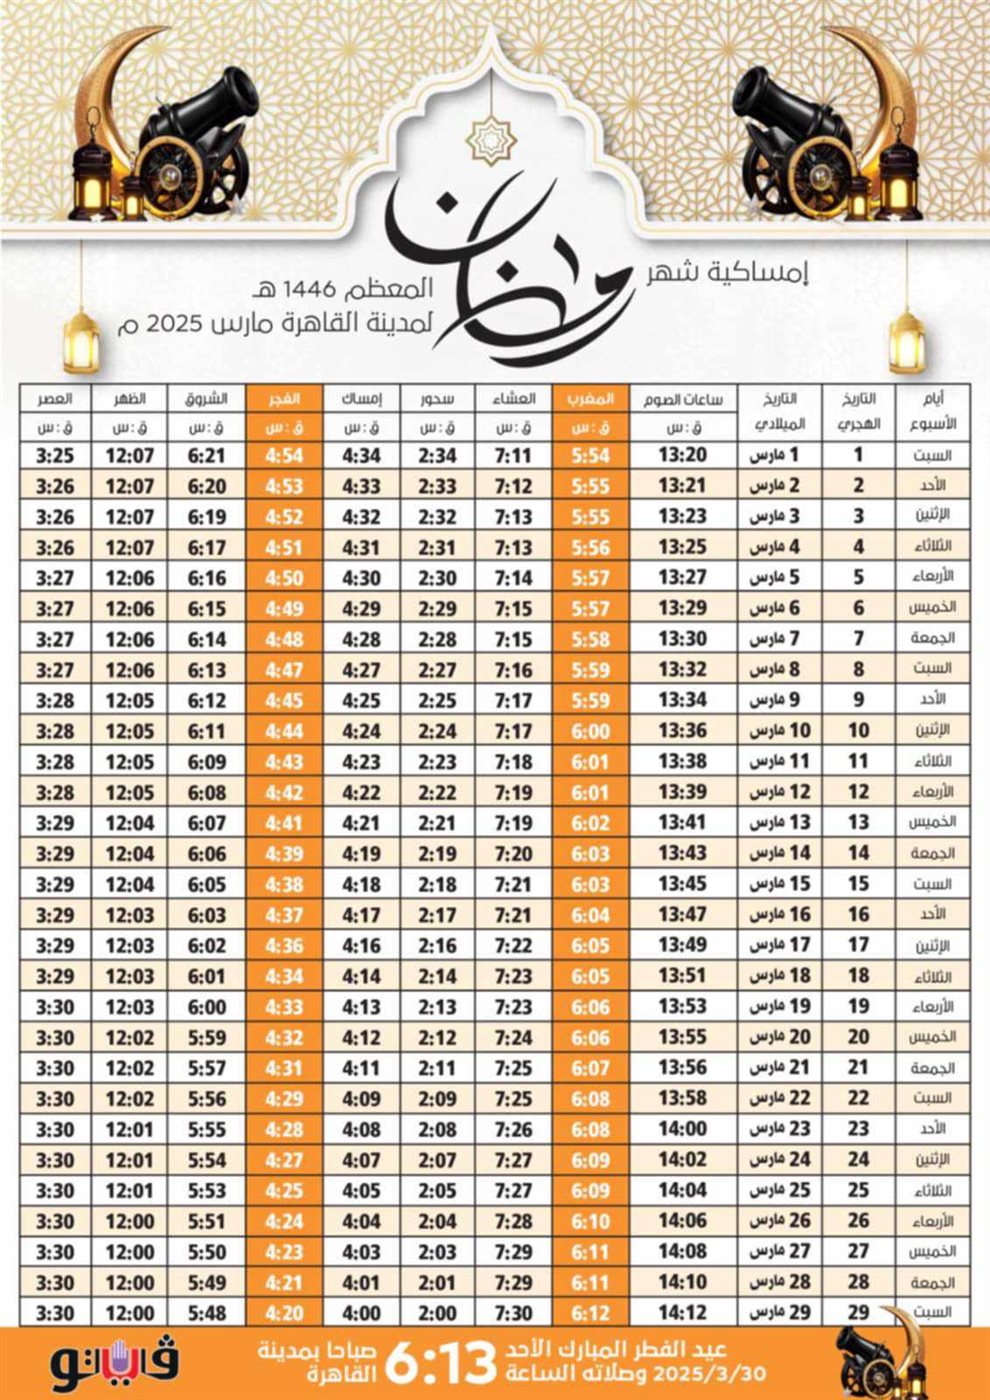 إمساكية شهر رمضان المعظم 1446 هـ
لمدينة القاهرة مارس 2025 م
أيام الأسبوع التاريخ الهجري التاريخ الميلادي ساعات الصوم المغرب العشاء سحور إمساك الفجر الشروق الظهر العصر
ق : س ق : س ق : س ق : س ق : س ق : س ق : س ق : س ق : س
السبت 1 1 مارس 13:20 5:54 7:11 2:34 4:34 4:54 6:21 12:07 3:25
الأحد 2 2 مارس 13:21 5:55 7:12 2:33 4:33 4:53 6:20 12:07 3:26
الإثنين 3 3 مارس 13:23 5:55 7:13 2:32 4:32 4:52 6:19 12:07 3:26
الثلاثاء 4 4 مارس 13:25 5:56 7:13 2:31 4:31 4:51 6:17 12:07 3:26
الأربعاء 5 5 مارس 13:27 5:57 7:14 2:30 4:30 4:50 6:16 12:06 3:27
الخميس 6 6 مارس 13:29 5:57 7:15 2:29 4:29 4:49 6:15 12:06 3:27
الجمعة 7 7 مارس 13:30 5:58 7:15 2:28 4:28 4:48 6:14 12:06 3:27
السبت 8 8 مارس 13:32 5:59 7:16 2:27 4:27 4:47 6:13 12:06 3:27
الأحد 9 9 مارس 13:34 5:59 7:17 2:25 4:25 4:45 6:12 12:05 3:28
الإثنين 10 10 مارس 13:36 6:00 7:17 2:24 4:24 4:44 6:11 12:05 3:28
الثلاثاء 11 11 مارس 13:38 6:01 7:18 2:23 4:23 4:43 6:09 12:05 3:28
الأربعاء 12 12 مارس 13:39 6:01 7:19 2:22 4:22 4:42 6:08 12:05 3:28
الخميس 13 13 مارس 13:41 6:02 7:19 2:21 4:21 4:41 6:07 12:04 3:29
الجمعة 14 14 مارس 13:43 6:03 7:20 2:19 4:19 4:39 6:06 12:04 3:29
السبت 15 15 مارس 13:45 6:03 7:21 2:18 4:18 4:38 6:05 12:04 3:29
الأحد 16 16 مارس 13:47 6:04 7:21 2:17 4:17 4:37 6:03 12:03 3:29
الإثنين 17 17 مارس 13:49 6:05 7:22 2:16 4:16 4:36 6:02 12:03 3:29
الثلاثاء 18 18 مارس 13:51 6:05 7:23 2:14 4:14 4:34 6:01 12:03 3:29
الأربعاء 19 19 مارس 13:53 6:06 7:23 2:13 4:13 4:33 6:00 12:03 3:30
الخميس 20 20 مارس 13:55 6:06 7:24 2:12 4:12 4:32 5:59 12:02 3:30
الجمعة 21 21 مارس 13:56 6:07 7:25 2:11 4:11 4:31 5:57 12:02 3:30
السبت 22 22 مارس 13:58 6:08 7:25 2:09 4:09 4:29 5:56 12:02 3:30
الأحد 23 23 مارس 14:00 6:08 7:26 2:08 4:08 4:28 5:55 12:01 3:30
الإثنين 24 24 مارس 14:02 6:09 7:27 2:07 4:07 4:27 5:54 12:01 3:30
الثلاثاء 25 25 مارس 14:04 6:09 7:27 2:05 4:05 4:25 5:53 12:01 3:30
الأربعاء 26 26 مارس 14:06 6:10 7:28 2:04 4:04 4:24 5:51 12:00 3:30
الخميس 27 27 مارس 14:08 6:11 7:29 2:03 4:03 4:23 5:50 12:00 3:30
الجمعة 28 28 مارس 14:10 6:11 7:29 2:01 4:01 4:21 5:49 12:00 3:30
السبت 29 29 مارس 14:12 6:12 7:30 2:00 4:00 4:20 5:48 12:00 3:30
عيد الفطر المبارك الأحد
2025/3/30 وصلاته الساعة
6:13
صباحا بمدينة
القاهرة
ڤايتو